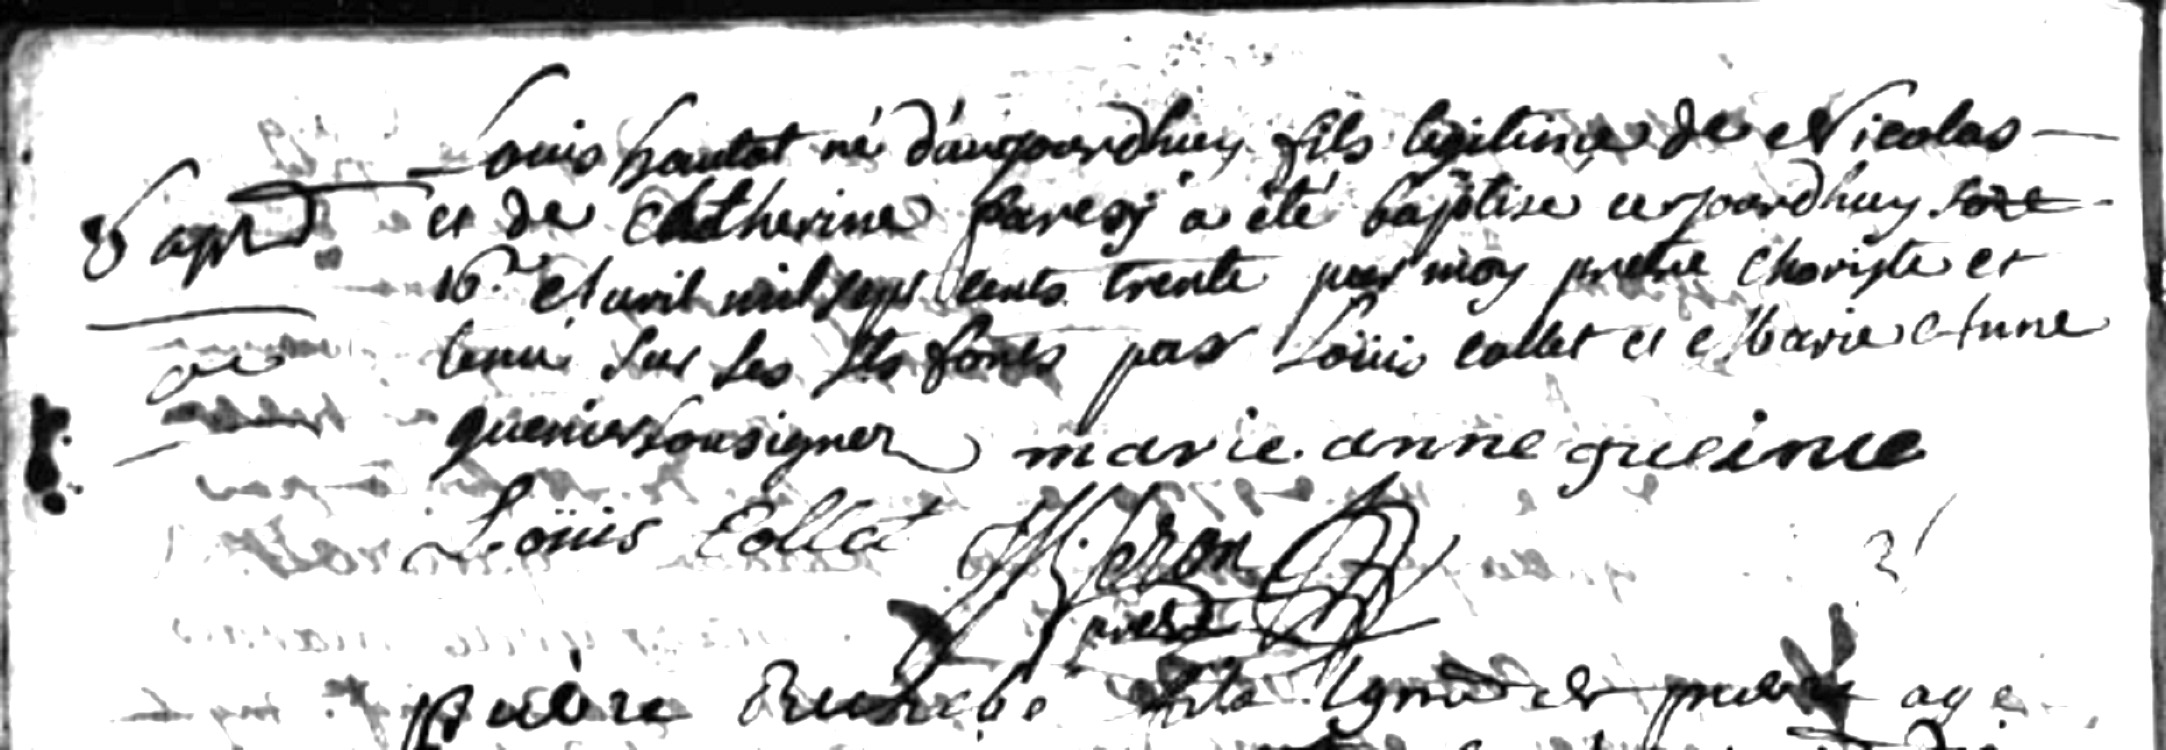 Louis hautot né d'aujourdhuy fils legitime de Nicolas
et de Catherine paresy a été baptise cejourdhuy
16. Avril mil sept cents trente par moy pretre choriste et
tenu sur les fonts par Loüis collet et Marie Anne
quenier sousigner marie. anne queinie
Loüis Collet
pierre fils de pierre age